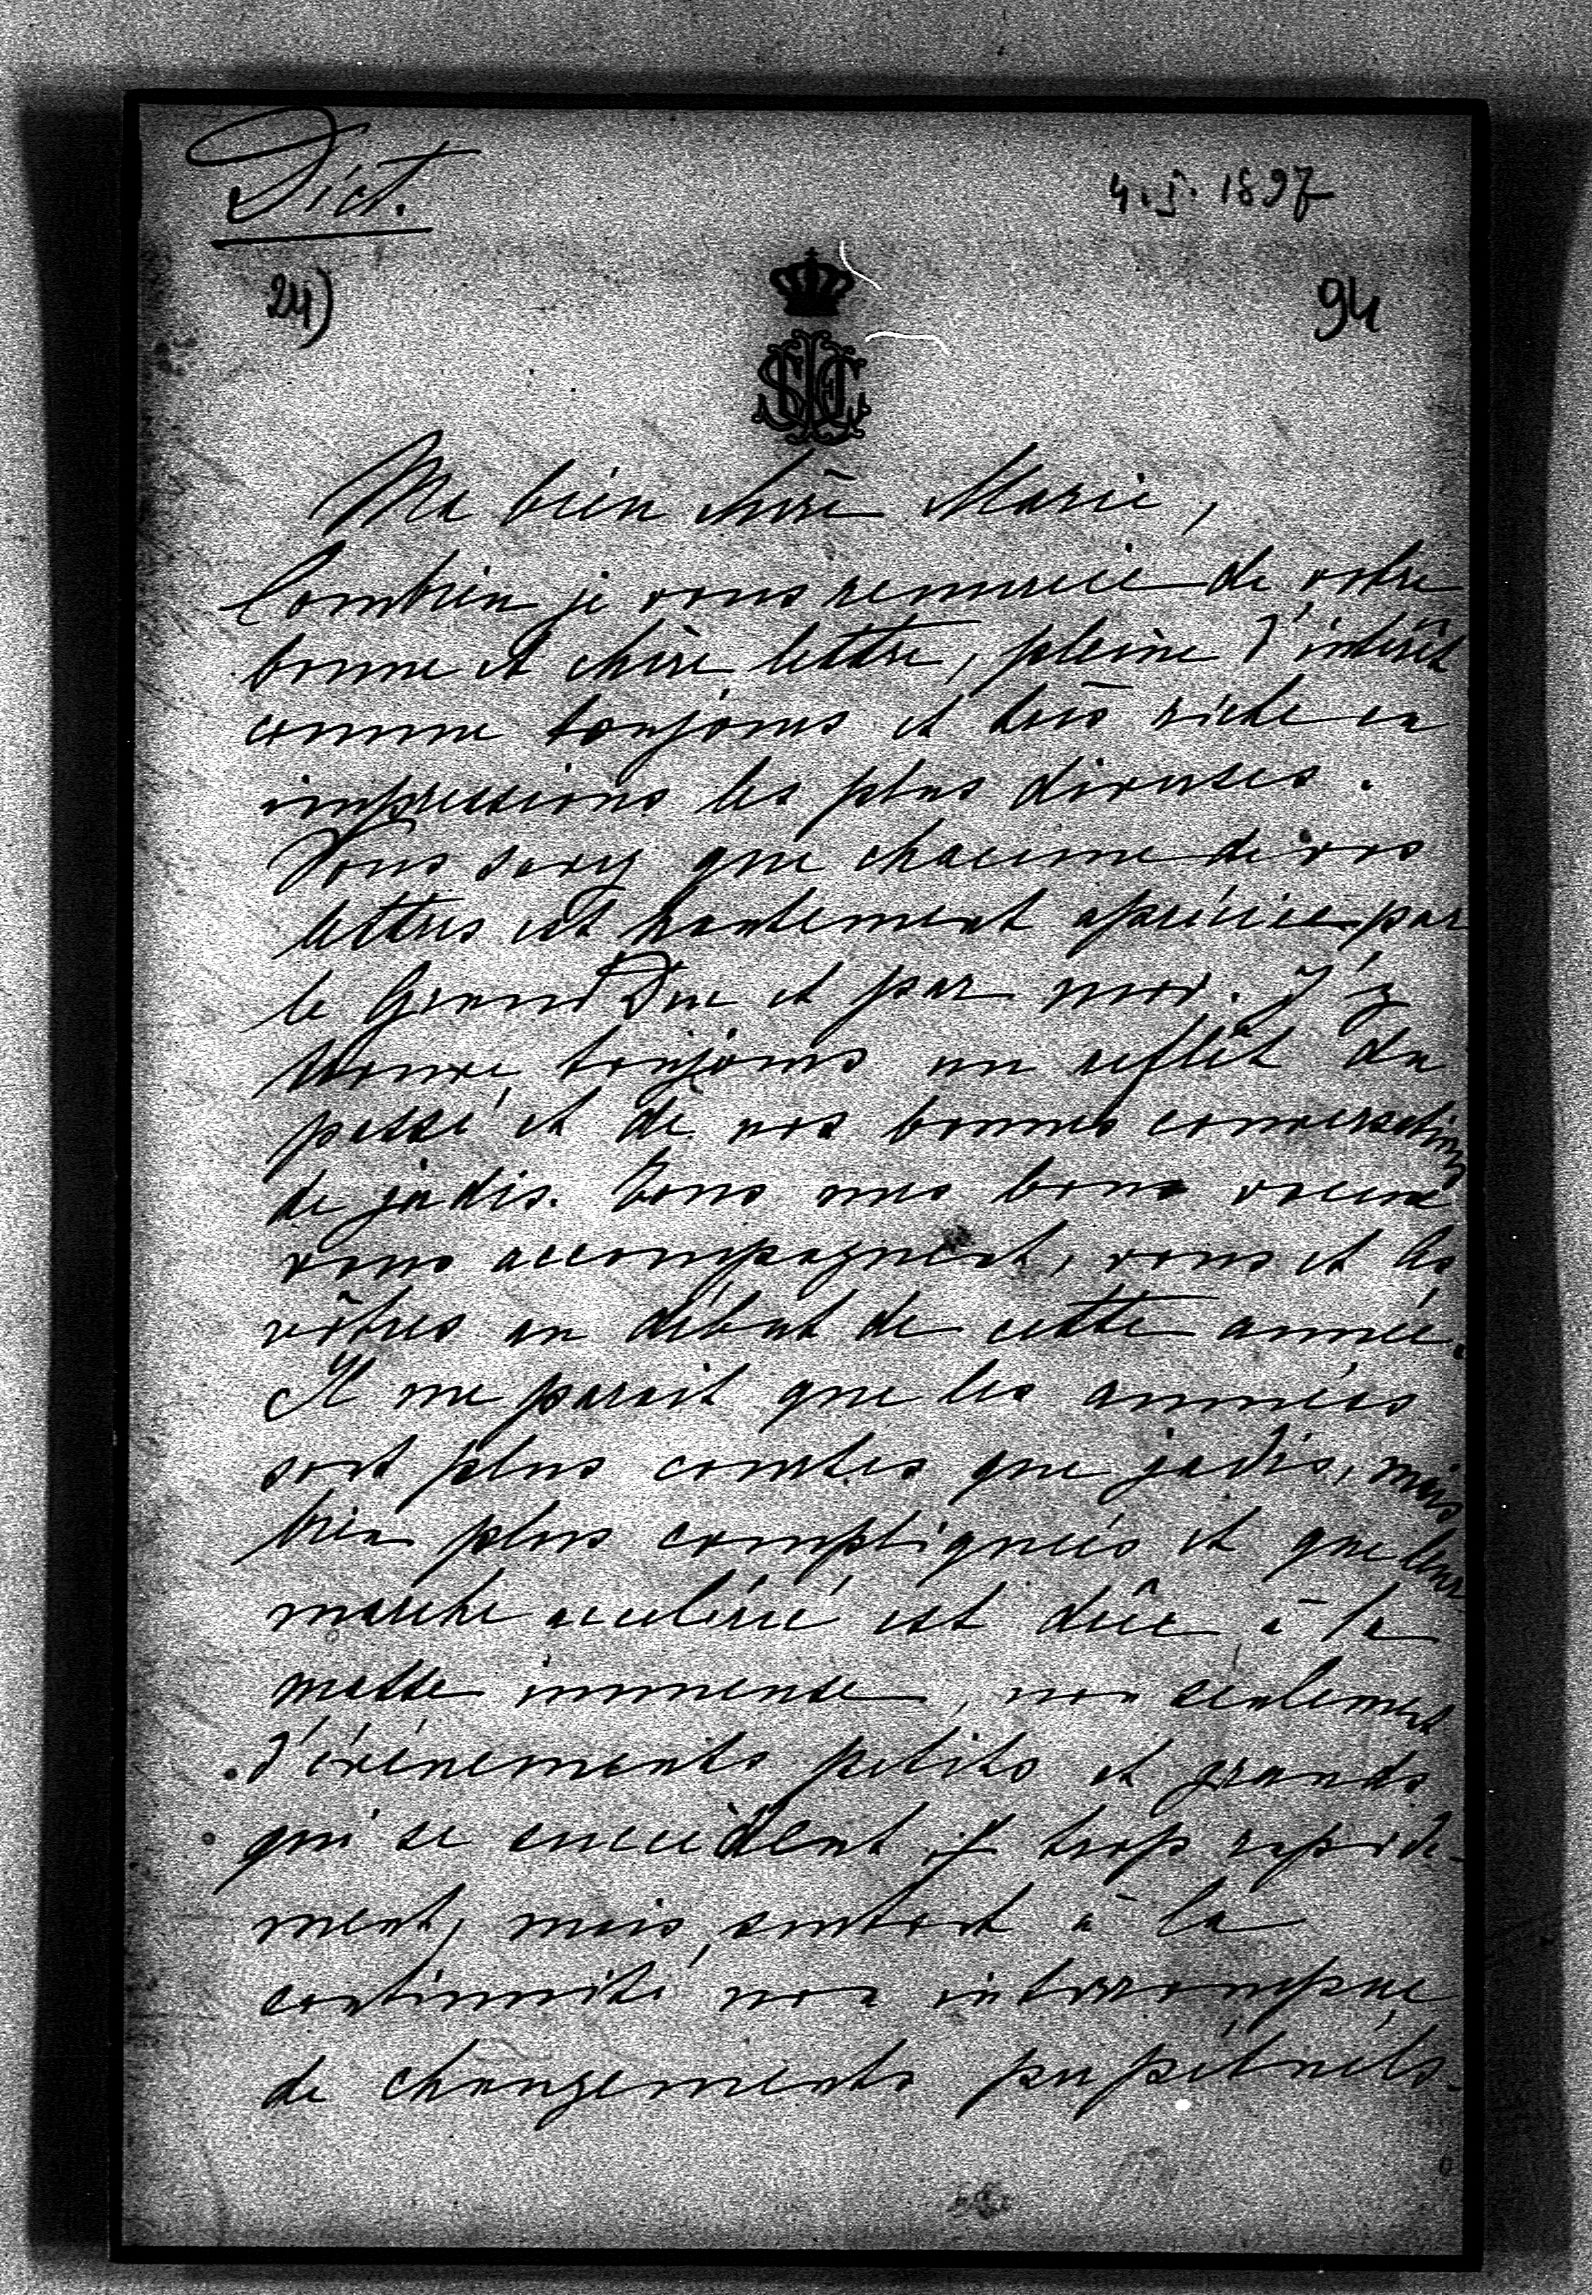 Dict.
4. I. 1897
24)
94
Ma bien chère Marie,
Combien je vous remercie de votre
bonne et chère lettre, pleine d'intérêt
comme toujours et très riche en
impressions les plus diverses.
Vous savez que chacune de vos
lettres est hautement apréciée par
le Grand Duc et par moi. J'y
trouve toujours un reflêt du
passé et de nos bonnes conversations
de jadis. Tous mes bons voeux
vous accompagnent, vous et les
vôtres au début de cette année.
Il me parait que les années
sont plus courtes que jadis, mais
bien plus compliquées et que leur
marche accelérée est dûe à la
masse immense, non seulement
d'événements petits et grands
qui se succèdent trop rapide-
ment, mais surtout à la
continuité non interrompue
de changements perpétuels.